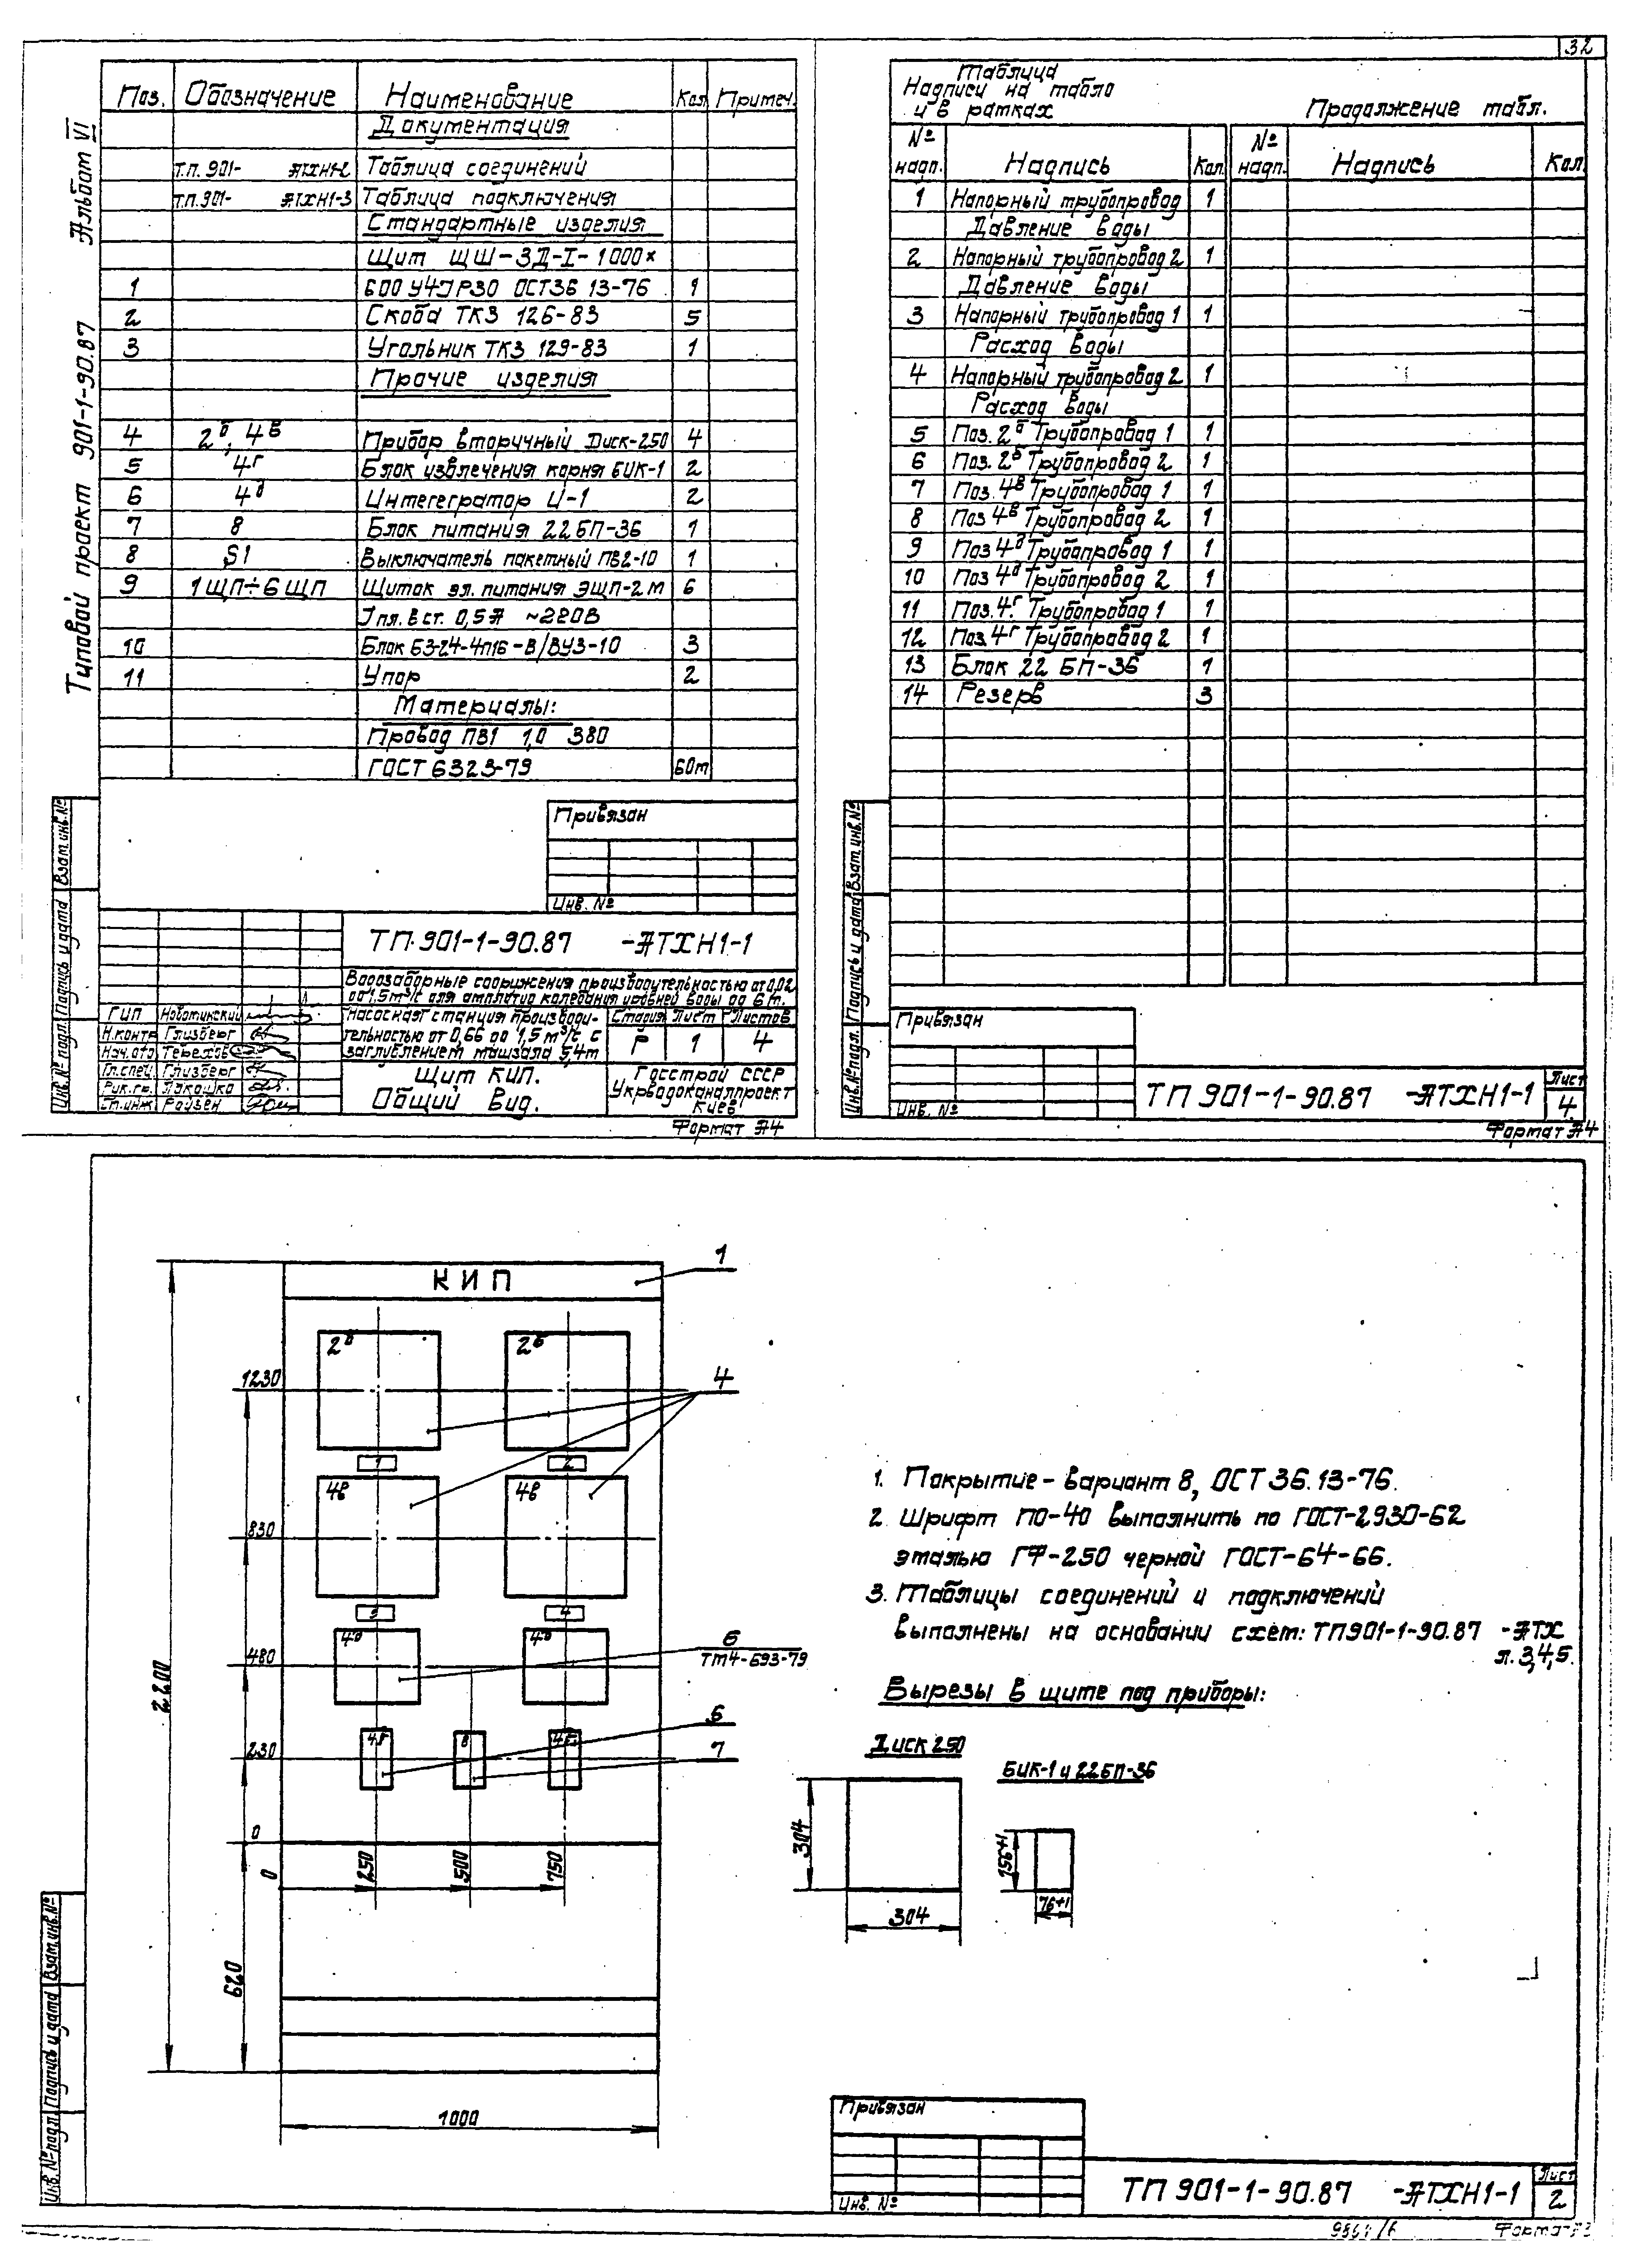 32
Альбом VI
Типовой проект 901-1-90.87
Поз. Обозначение Наименование Кол Примеч.
Документация
Т.П. 901- АТХН1-2 Таблица соединений
Т.П. 901- АТХН1-3 Таблица подключения
Стандартные изделия
Щит ЩШ-ЗД-I-1000х
1 600 У4 IP30 ОСТ36 13-76 1
2 Скоба ТКЗ 126-83 5
3 Угольник ТКЗ 129-83 1
Прочие изделия
4 2б, 4в Прибор вторичный Диск-250 4
5 4г Блок извлечения корня БИК-1 2
6 4д Интегегратор И-1 2
7 8 Блок питания 22БП-36 1
8 S1 Выключатель пакетный ПВ2-10 1
9 1ЩП÷6ЩП Щиток эл. питания ЭЩП-2м 6
Iпл.вст. 0,5А ~220В
10 Блок БЗ-24-4п16-В/ВУ3-10 3
11 Упор 2
Материалы:
Провод ПВ1 1,0 380
ГОСТ 6323-79 60м
Привязан
Инв. №
Взам. инв. №
Подпись и дата
Инв. № подл.
ТП.901-1-90.87 -АТХН1-1
Водозаборные сооружения производительностью от 0,02
до 1,5м³/с для амплитуд колебания уровней воды до 6м.
ГИП Новотинский
Н.контр Глизберг
Нач.отд Терехов
Гл.спец. Глизберг
Рук.гр. Лакошко
Ст.инж Ройзен
Насосная станция производи-
тельностью от 0,66 до 1,5м³/с с
заглублением машзала 5,4м
Стадия Лист Листов
Р 1 4
Щит КИП.
Общий вид.
Госстрой СССР
Укрводоканалпроект
Киев
Формат А4
Таблица
Надписи на табло
и в рамках
Продолжение табл.
№ надп. Надпись Кол. № надп. Надпись Кол.
1 Напорный трубопровод 1
Давление воды
2 Напорный трубопровод 2 1
Давление воды
3 Напорный трубопровод 1 1
Расход воды
4 Напорный трубопровод 2 1
Расход воды
5 Поз. 2б Трубопровод 1 1
6 Поз. 2б Трубопровод 2 1
7 Поз. 4в Трубопровод 1 1
8 Поз 4в Трубопровод 2 1
9 Поз 4д Трубопровод 1 1
10 Поз 4д Трубопровод 2 1
11 Поз. 4г Трубопровод 1 1
12 Поз. 4г Трубопровод 2 1
13 Блок 22 БП-36 1
14 Резерв 3
Взам. инв. №
Подпись и дата
Инв. № подл.
Привязан
Инв. №
ТП 901-1-90.87 -АТХН1-1
Лист
4
Формат А4
КИП
1
2б 2б
1230
4
1 2
4в 4в
830
3 4
4д 4д
480
6
ТМ4-693-79
4г 8 4г
5
230
7
0
0 250 500 750
2200
620
1000
1. Покрытие - вариант 8, ОСТ 36.13-76.
2. Шрифт ПО-40 выполнить по ГОСТ-2930-62
эмалью ГФ-250 черной ГОСТ-64-66.
3. Таблицы соединений и подключений
выполнены на основании схем: ТП901-1-90.87 -АТХ
л. 3,4,5.
Вырезы в щите под приборы:
Диск 250
БИК-1 и 22БП-36
304
304
156+1
76+1
Взам. инв. №
Подпись и дата
Инв. № подл.
Привязан
Инв. №
ТП 901-1-90.87 -АТХН1-1
Лист
2